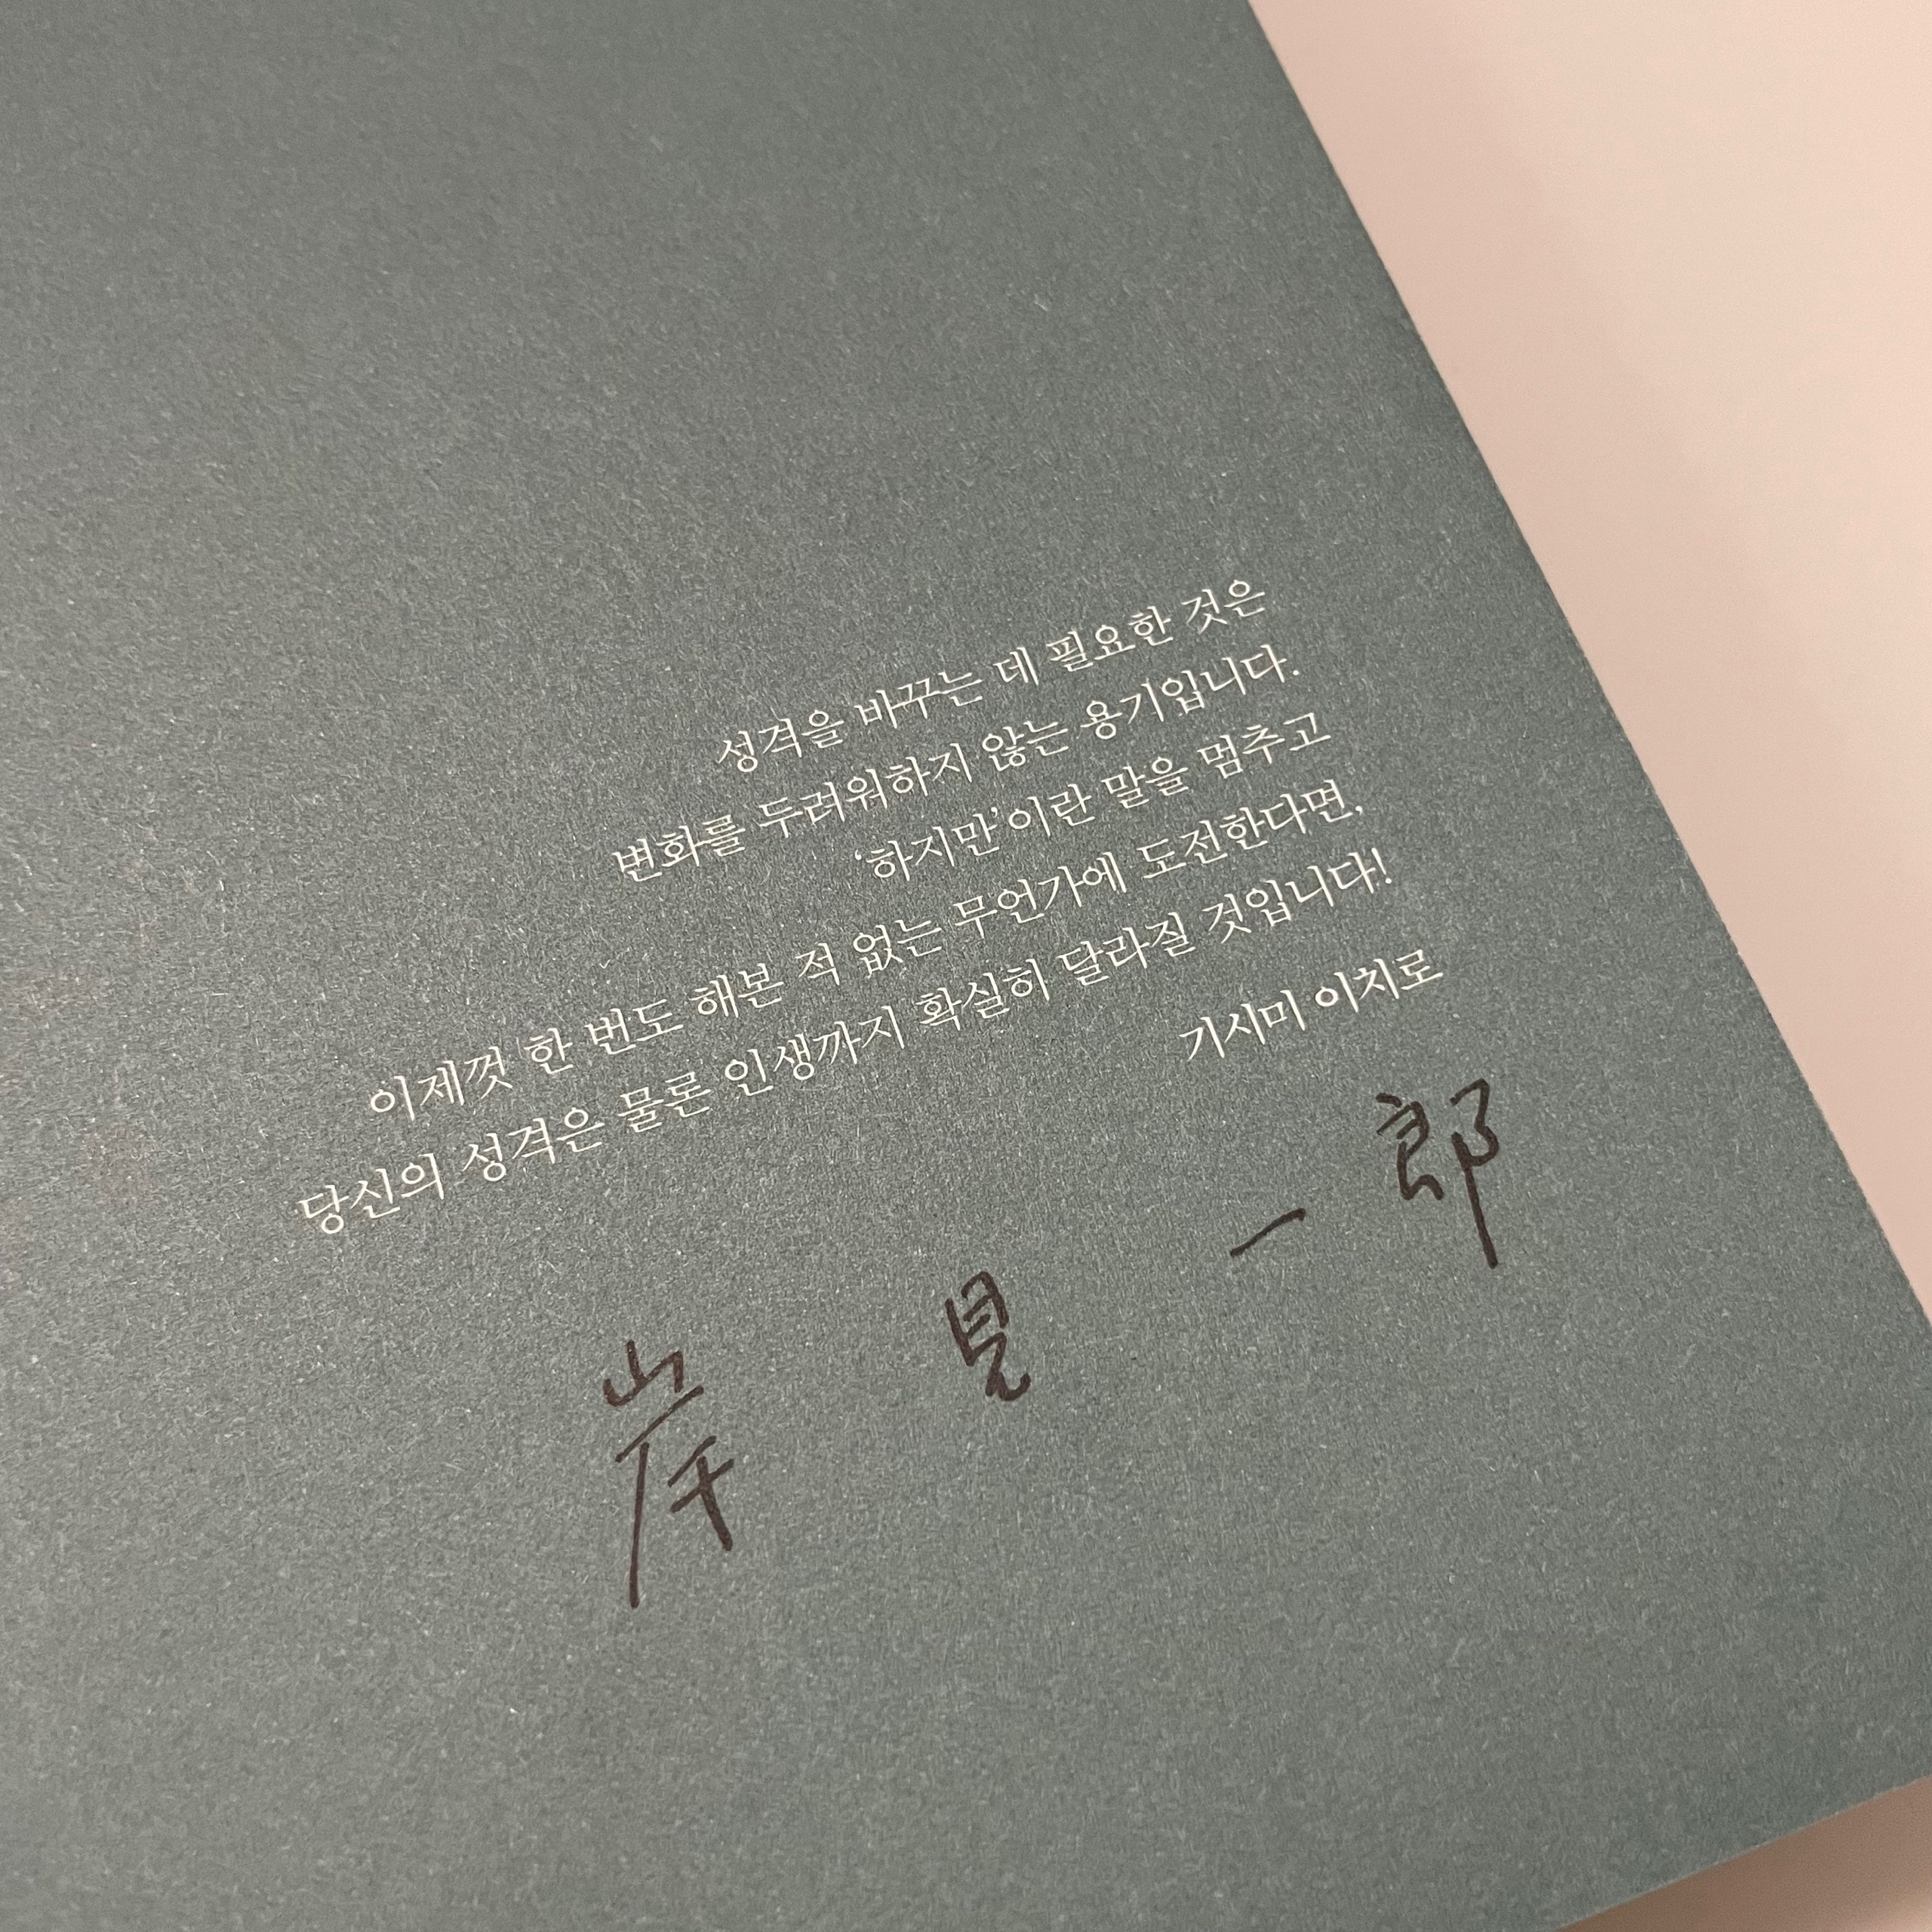 성격을 바꾸는 데 필요한 것은
변화를 두려워하지 않는 용기입니다.
‘하지만’이란 말을 멈추고
이제껏 한 번도 해본 적 없는 무언가에 도전한다면,
당신의 성격은 물론 인생까지 확실히 달라질 것입니다!
기시미 이치로
岸見一郎